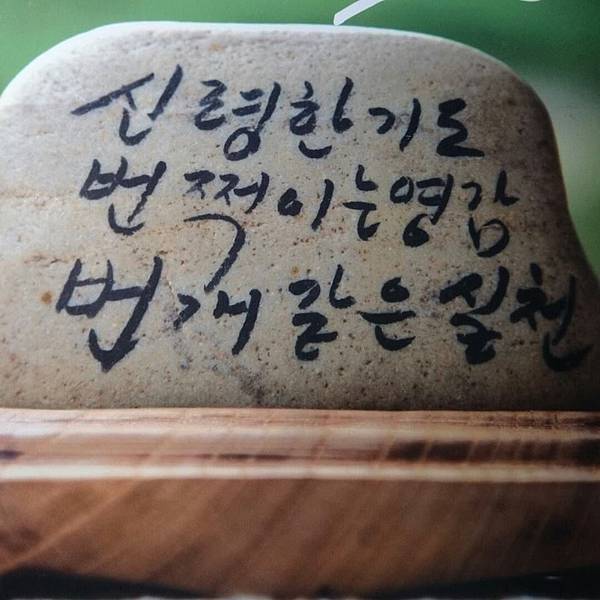 신령한 기도
번쩍이는 영감
번개 같은 실천